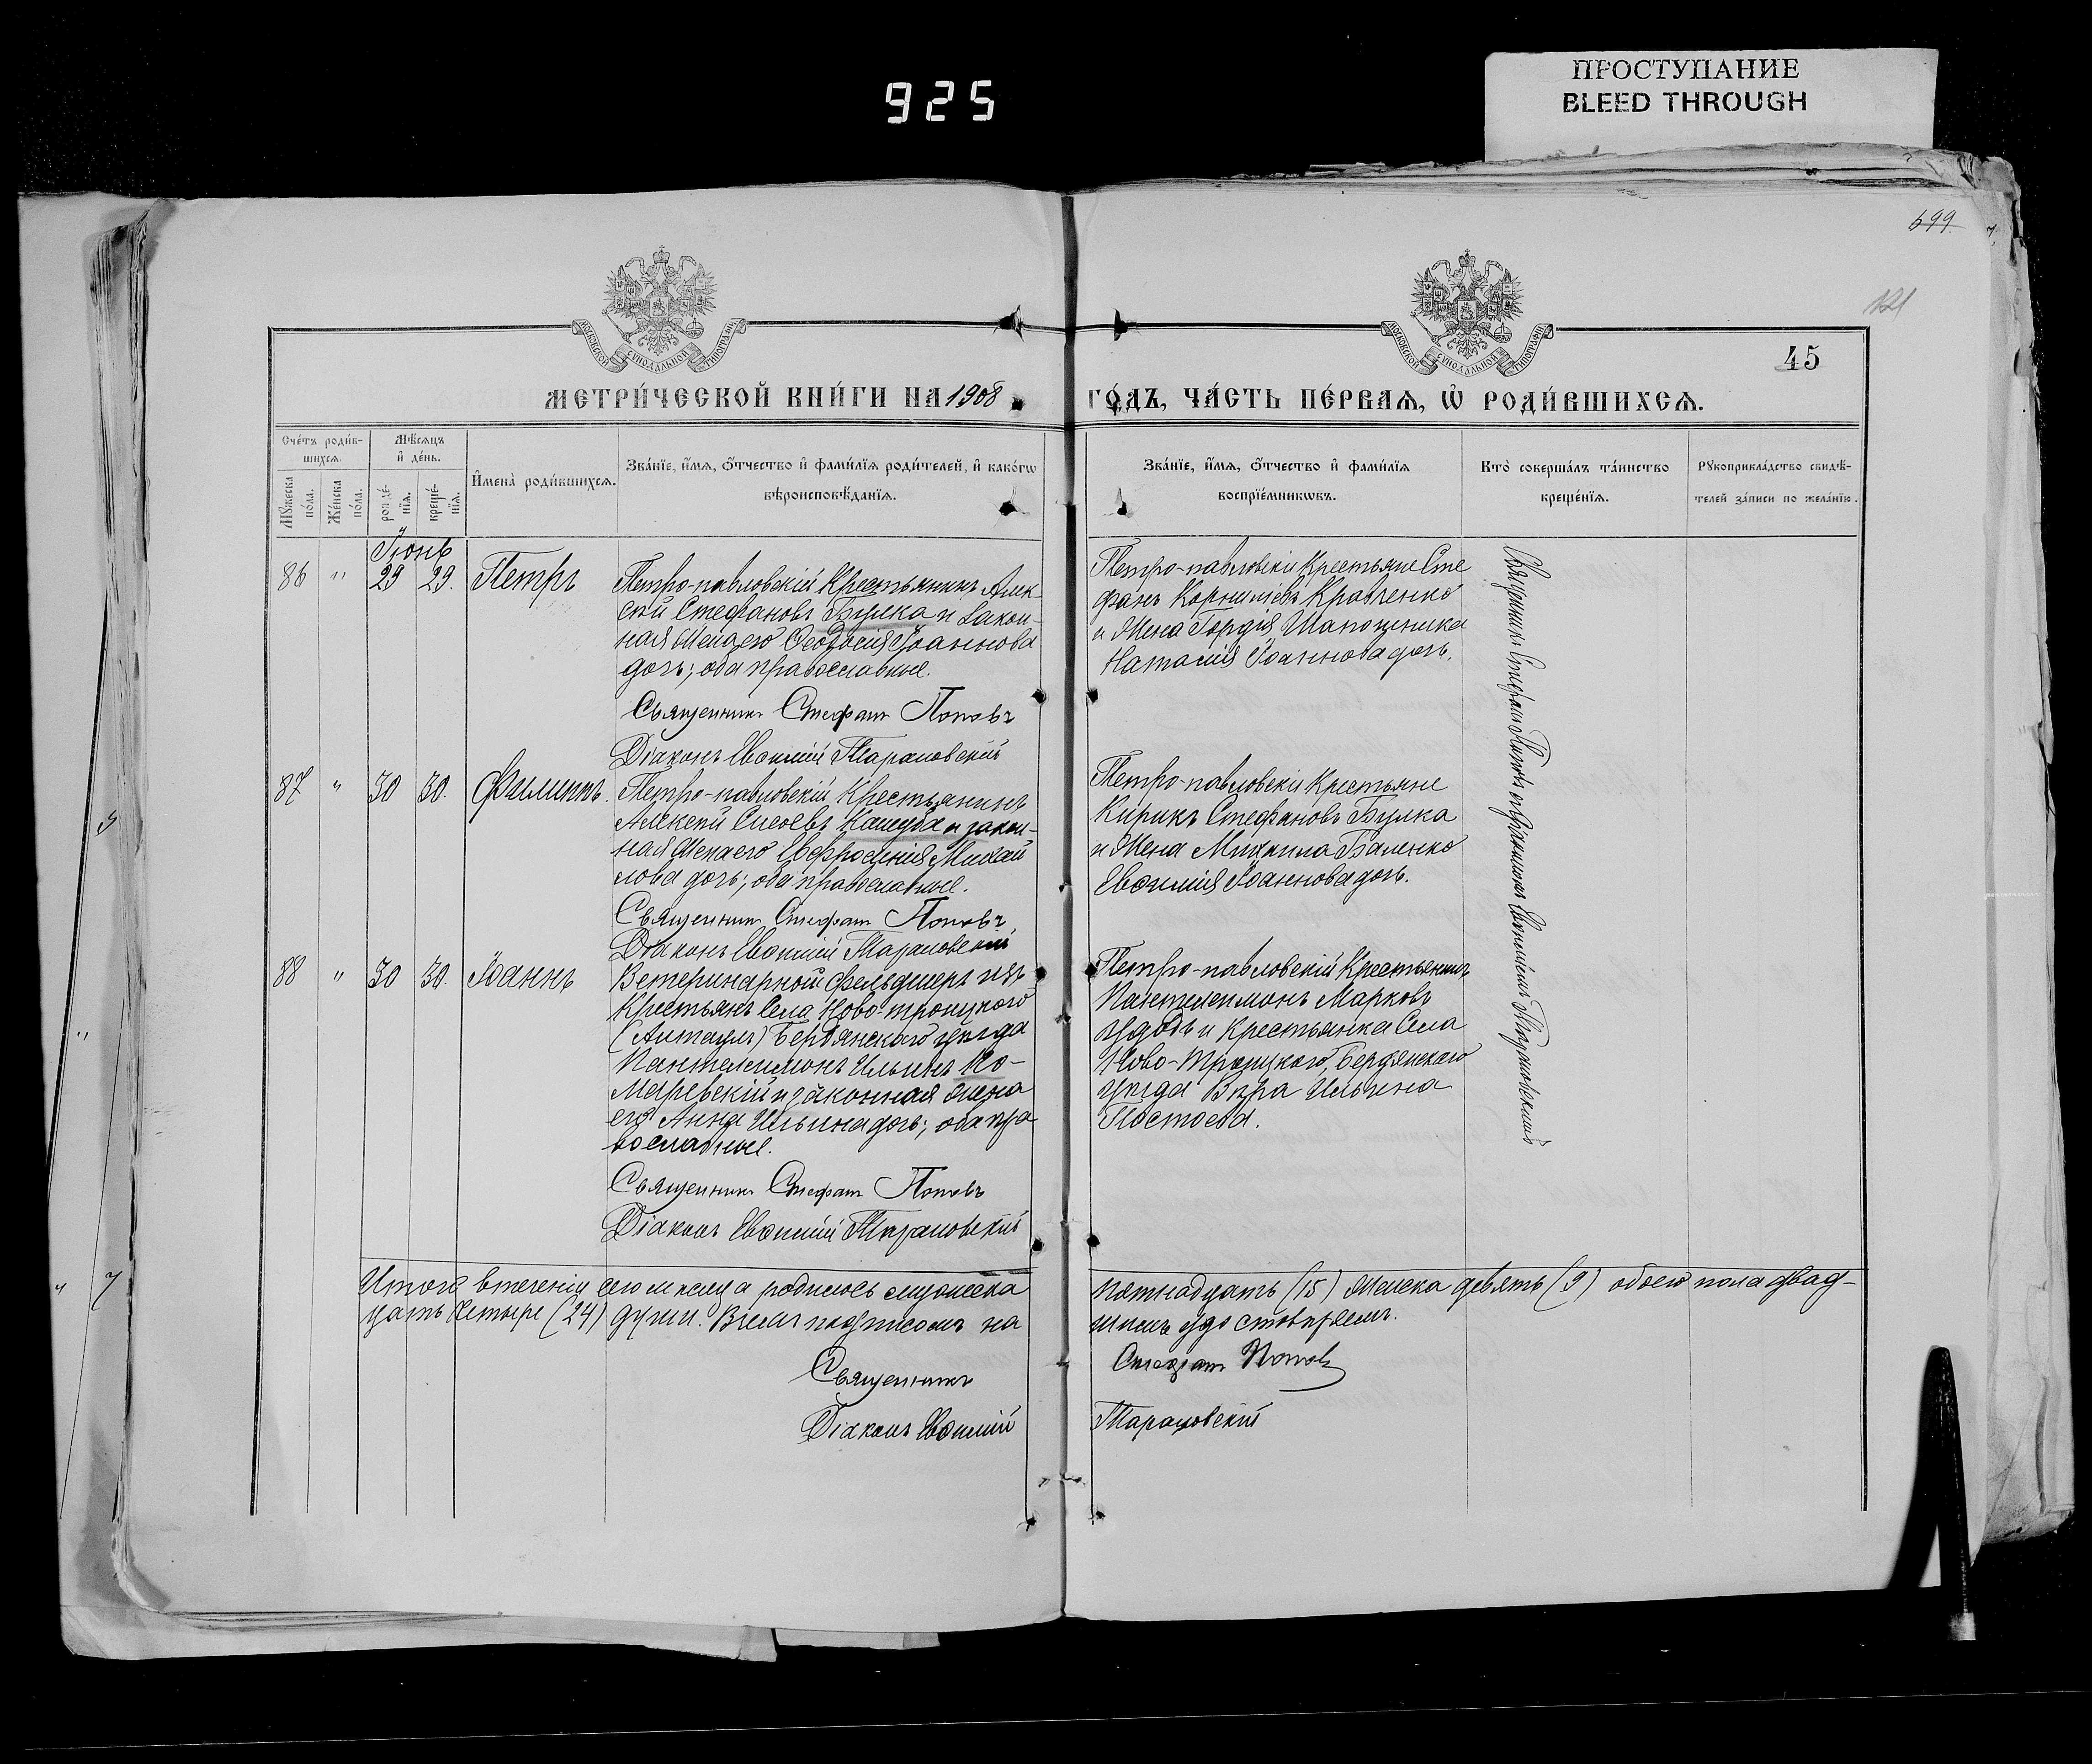 925
ПРОСТУПАНИЕ
BLEED THROUGH
599
121
45
МОСКОВСКОЙ СѴНОДАЛЬНОЙ ТИПОГРАФІИ
МОСКОВСКОЙ СѴНОДАЛЬНОЙ ТИПОГРАФІИ
МЕТРИ́ЧЕСКОЙ КНИ́ГИ НА 1908
ГО́ДЪ, ЧА́СТЬ ПЕ́РВАѦ, Ѡ҆ РОДИ́ВШИХСѦ.
Сче́тъ роди́в-
шихсѧ.
Мꙋ́жеска по́ла.
Же́нска по́ла.
Мѣ́сѧцъ
и҆ де́нь.
рожде́-
нїѧ.
креще́-
нїѧ.
И҆мена̀ роди́вшихсѧ.
Зва́нїе, и҆́мѧ, ѻ҆́тчество и҆ фами́лїѧ роди́телей, и҆ како́гѡ
вѣроисповѣ́данїѧ.
Зва́нїе, и҆́мѧ, ѻ҆́тчество и҆ фами́лїѧ
воспрїе́мникѡвъ.
Кто̀ соверша́лъ та́инство
креще́нїѧ.
Рꙋкоприкла́дство свидѣ́-
телей за́писи по жела́нїю.
Іюнь
86 " 29 29. Петръ
Петро-павловскій Крестьянинъ Алек-
сѣй Стефановъ Булка и закон-
ная жена его Ѳеодосія Іоаннова
дочь; оба православные.
Священникъ Стефанъ Поповъ
Діаконъ Евѳимій Тарановскій
Петро-павловскіе Крестьяне Сте
фанъ Корниліевъ Кравченко
и жена Гордія Шапошника
Наталія Іоаннова дочь.
87 " 30 30. Филиппъ.
Петро-павловскій Крестьянинъ
Алексѣй Сисоевъ Кашуба и закон-
ная жена его Евфросинія Михай
лова дочь; оба православные.
Священникъ Стефанъ Поповъ
Діаконъ Евѳимій Тарановскій
Петро-павловскіе Крестьяне
Кирикъ Стефановъ Булка
и жена Михаила Баленко
Евѳимія Іоаннова дочь.
88 " 30 30. Іоаннъ
Ветеринарной фельдшеръ изъ
Крестьянъ Села Ново-троицкого
Бердянского уѣзда
Пантелеимонъ Ильинъ Ко-
маревскій и законная жена
его Анна Ильина дочь; оба пра
вославные.
Священникъ Стефанъ Поповъ
Діаконъ Евѳимій Тарановскій
Петро-павловскій Крестьянинъ
Пантелеимонъ Марковъ
Удодъ и Крестьянка Села
Ново-Троицкого, Бердянского
уѣзда Вѣра Ильина
Постоева.
Священникъ Стефанъ Поповъ съ діакономъ Евѳиміемъ Тарановскимъ
Итого втеченіи сего мѣсяца родилось мужеска
пятнадцать (15) женска девять (9) обоего пола двад-
цать четыре (24) души. Вчемъ подписомъ на
Священникъ
Стефанъ Поповъ
Діаконъ Евѳимій
Тарановскій